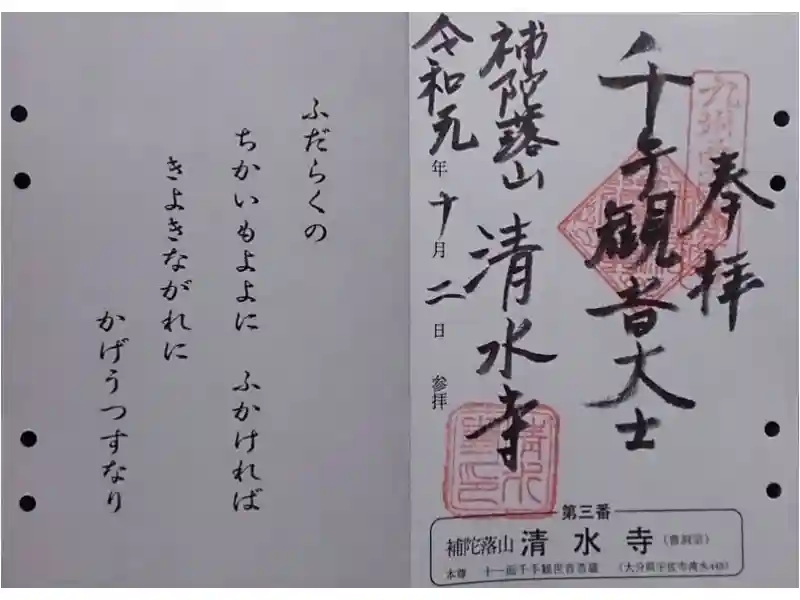 奉拝
千手観音大士
補陀落山 清水寺
令和元年十月二日 参拝
第三番
補陀落山 清水寺 (曹洞宗)
本尊 十一面千手観世音菩薩 (大分県宇佐市清水448)
ふだらくの
ちかいもよよに ふかければ
きよきながれに
かげうつすなり